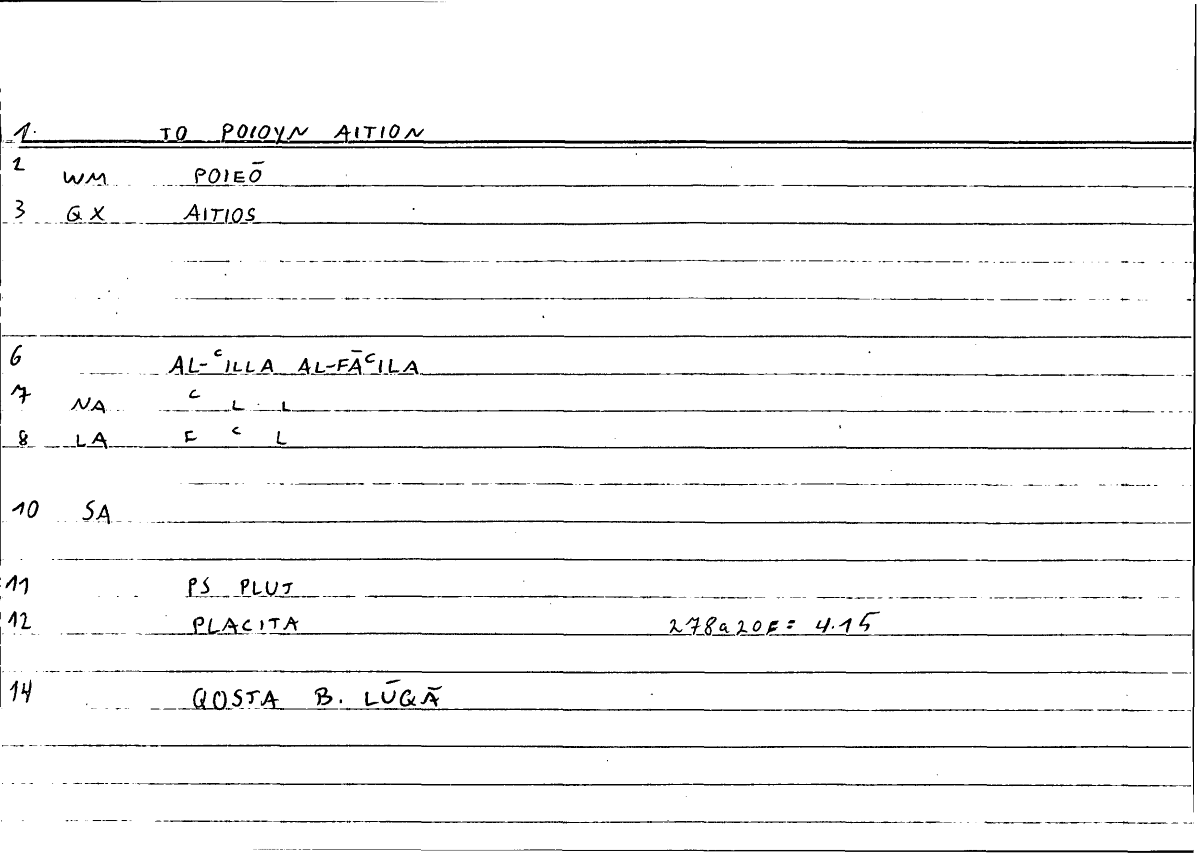 1. TO POIOYN AITION
2 WM POIEŌ
3 GX AITIOS
6 AL-ᶜILLA AL-FĀᶜILA
7 NA ᶜ L L
8 LA F ᶜ L
10 SA
11 PS PLUT
12 PLACITA 278a20F = 4.15
14 QOSTA B. LŪQĀ